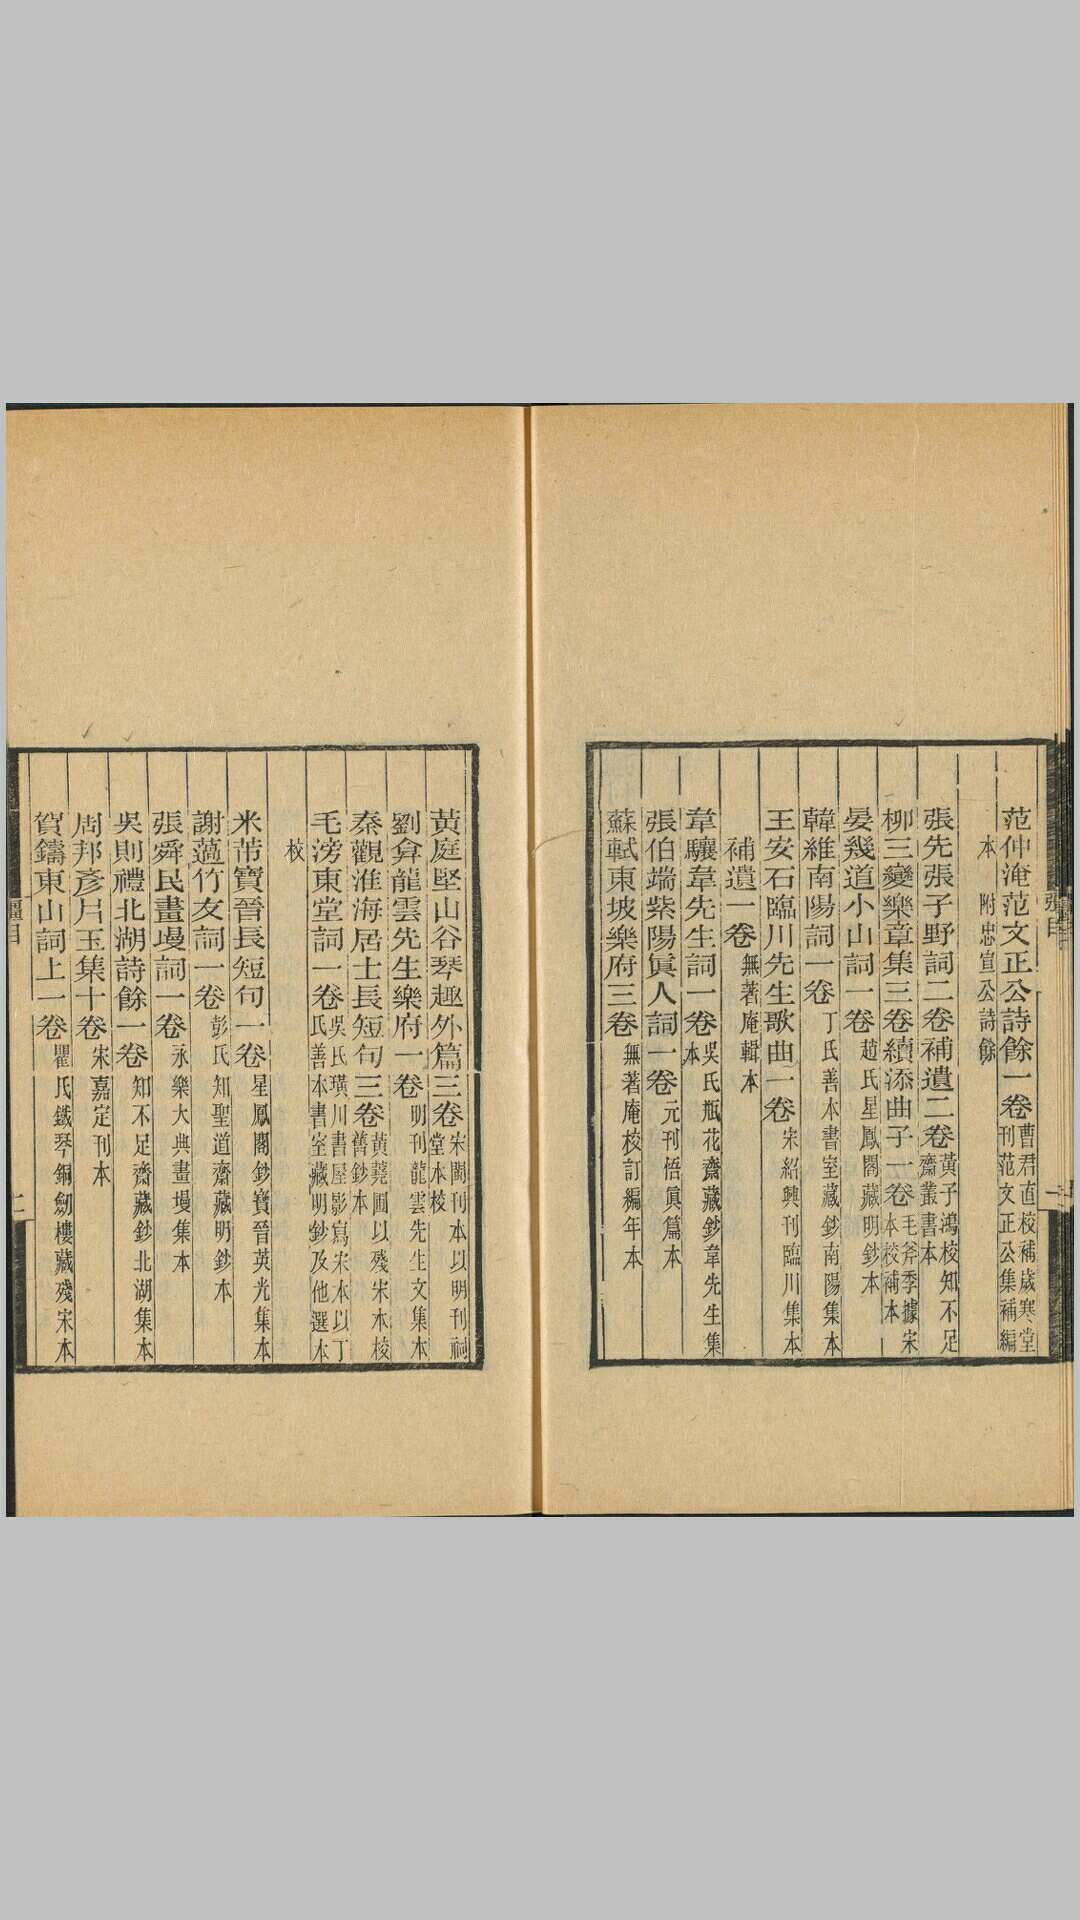 范仲淹范文正公詩餘一卷曹君直校補歲寒堂刊范文正公集補編
本　附忠宣公詩餘
張先張子野詞二卷補遺二卷黃子鴻校知不足齋叢書本
柳三變樂章集三卷續添曲子一卷毛斧季據宋本校補本
晏幾道小山詞一卷趙氏星鳳閣藏明鈔本
韓維南陽詞一卷丁氏善本書室藏鈔南陽集本
王安石臨川先生歌曲一卷宋紹興刊臨川集本
補遺一卷無著庵輯本
韋驤韋先生詞一卷吳氏瓶花齋藏鈔韋先生集本
張伯端紫陽眞人詞一卷元刊悟眞篇本
蘇軾東坡樂府三卷無著庵校訂編年本
黃庭堅山谷琴趣外篇三卷宋閩刊本以明刊祠堂本校
劉弇龍雲先生樂府一卷明刊龍雲先生文集本
秦觀淮海居士長短句三卷黃蕘圃以殘宋本校舊鈔本
毛滂東堂詞一卷吳氏璜川書屋影寫宋本以丁氏善本書室藏明鈔及他選本
校
米芾寶晉長短句一卷星鳳閣鈔寶晉英光集本
謝薖竹友詞一卷彭氏知聖道齋藏明鈔本
張舜民畫墁詞一卷永樂大典畫墁集本
吳則禮北湖詩餘一卷知不足齋藏鈔北湖集本
周邦彥片玉集十卷宋嘉定刊本
賀鑄東山詞上一卷瞿氏鐵琴銅劒樓藏殘宋本
彊目
二